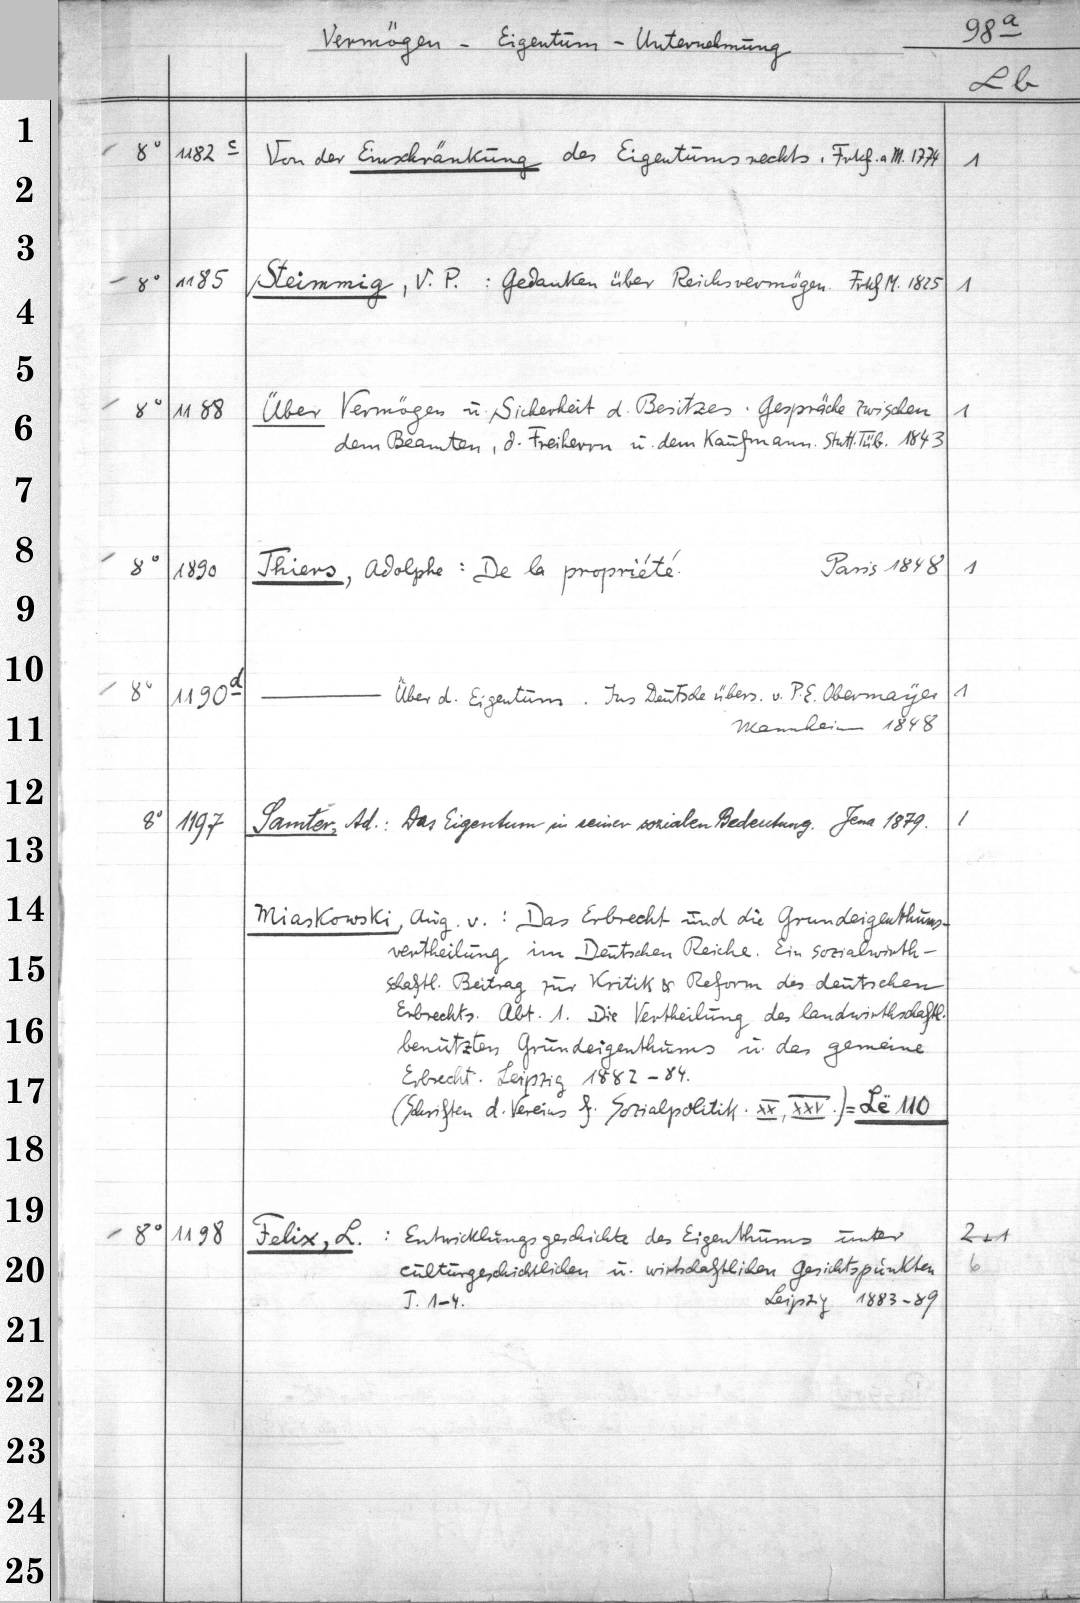 Vermögen - Eigentum - Unternehmung 98a
Lb
1
8° 1182 c Von der Einschränkung des Eigentumsrechts. Frkf. a M. 1774 1
2
3
8° 1185 Steimmig, V. P. : Gedanken über Reichsvermögen. Frkf M. 1825 1
4
5
8° 1188 Über Vermögen u. Sicherheit d. Besitzes. Gespräche zwischen 1
6
dem Beamten, d. Freiherrn u. dem Kaufmann. Stutt. Tüb. 1843
7
8
8° 1890 Thiers, Adolphe : De la propriété. Paris 1848 1
9
10
8° 1190 d ——— Über d. Eigentum. Ins Deutsche übers. v. P.E. Obermayer 1
11 Mannheim 1848
12
8° 1197 Samter, Ad.: Das Eigentum in seiner sozialen Bedeutung. Jena 1879. 1
13
14 Miaskowski, Aug. v. : Das Erbrecht und die Grundeigenthums-
vertheilung im Deutschen Reiche. Ein sozialwirth-
15
schaftl. Beitrag zur Kritik & Reform des deutschen
Erbrechts. Abt. 1. Die Vertheilung des landwirthschaftl.
16
benutzten Grundeigenthums u. das gemeine
Erbrecht. Leipzig 1882-84.
17
(Schriften d. Vereins f. Sozialpolitik. XX, XXV.) = Lë 110
18
19
8° 1198 Felix, L. : Entwicklungsgeschichte des Eigenthums unter 2+1
20 culturgeschichtlichen u. wirtschaftlichen Gesichtspunkten 6
T. 1-4. Leipzig 1883-89
21
22
23
24
25